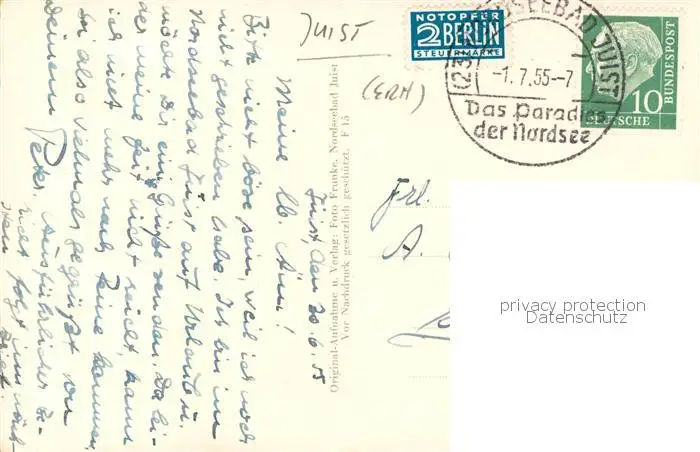 JUIST
(ERH)
NOTOPFER
2 BERLIN
STEUERMARKE
(23) NORDSEEBAD JUIST
-1.7.55-7
Das Paradies
der Nordsee
10
DEUTSCHE
BUNDESPOST
Juist, den 30.6.55
Meine lb. Änni!
Bitte nicht böse sein, weil ich noch
nicht geschrieben habe. Ich bin im
Nordseebad Juist auf Urlaub u.
möchte Dir eine Grüße senden. Da lei-
der meine Zeit nicht reicht, kann
ich nicht mehr nach kommen.
Sei also vielmals gegrüßt von
Deinem Peter. Ausführlicher
folgt im näch-
sten Brief.
Original-Aufnahme u. Verlag: Foto Franke, Nordseebad Juist
Vor Nachdruck gesetzlich geschützt. F 15
Frl.
A.
privacy protection
Datenschutz